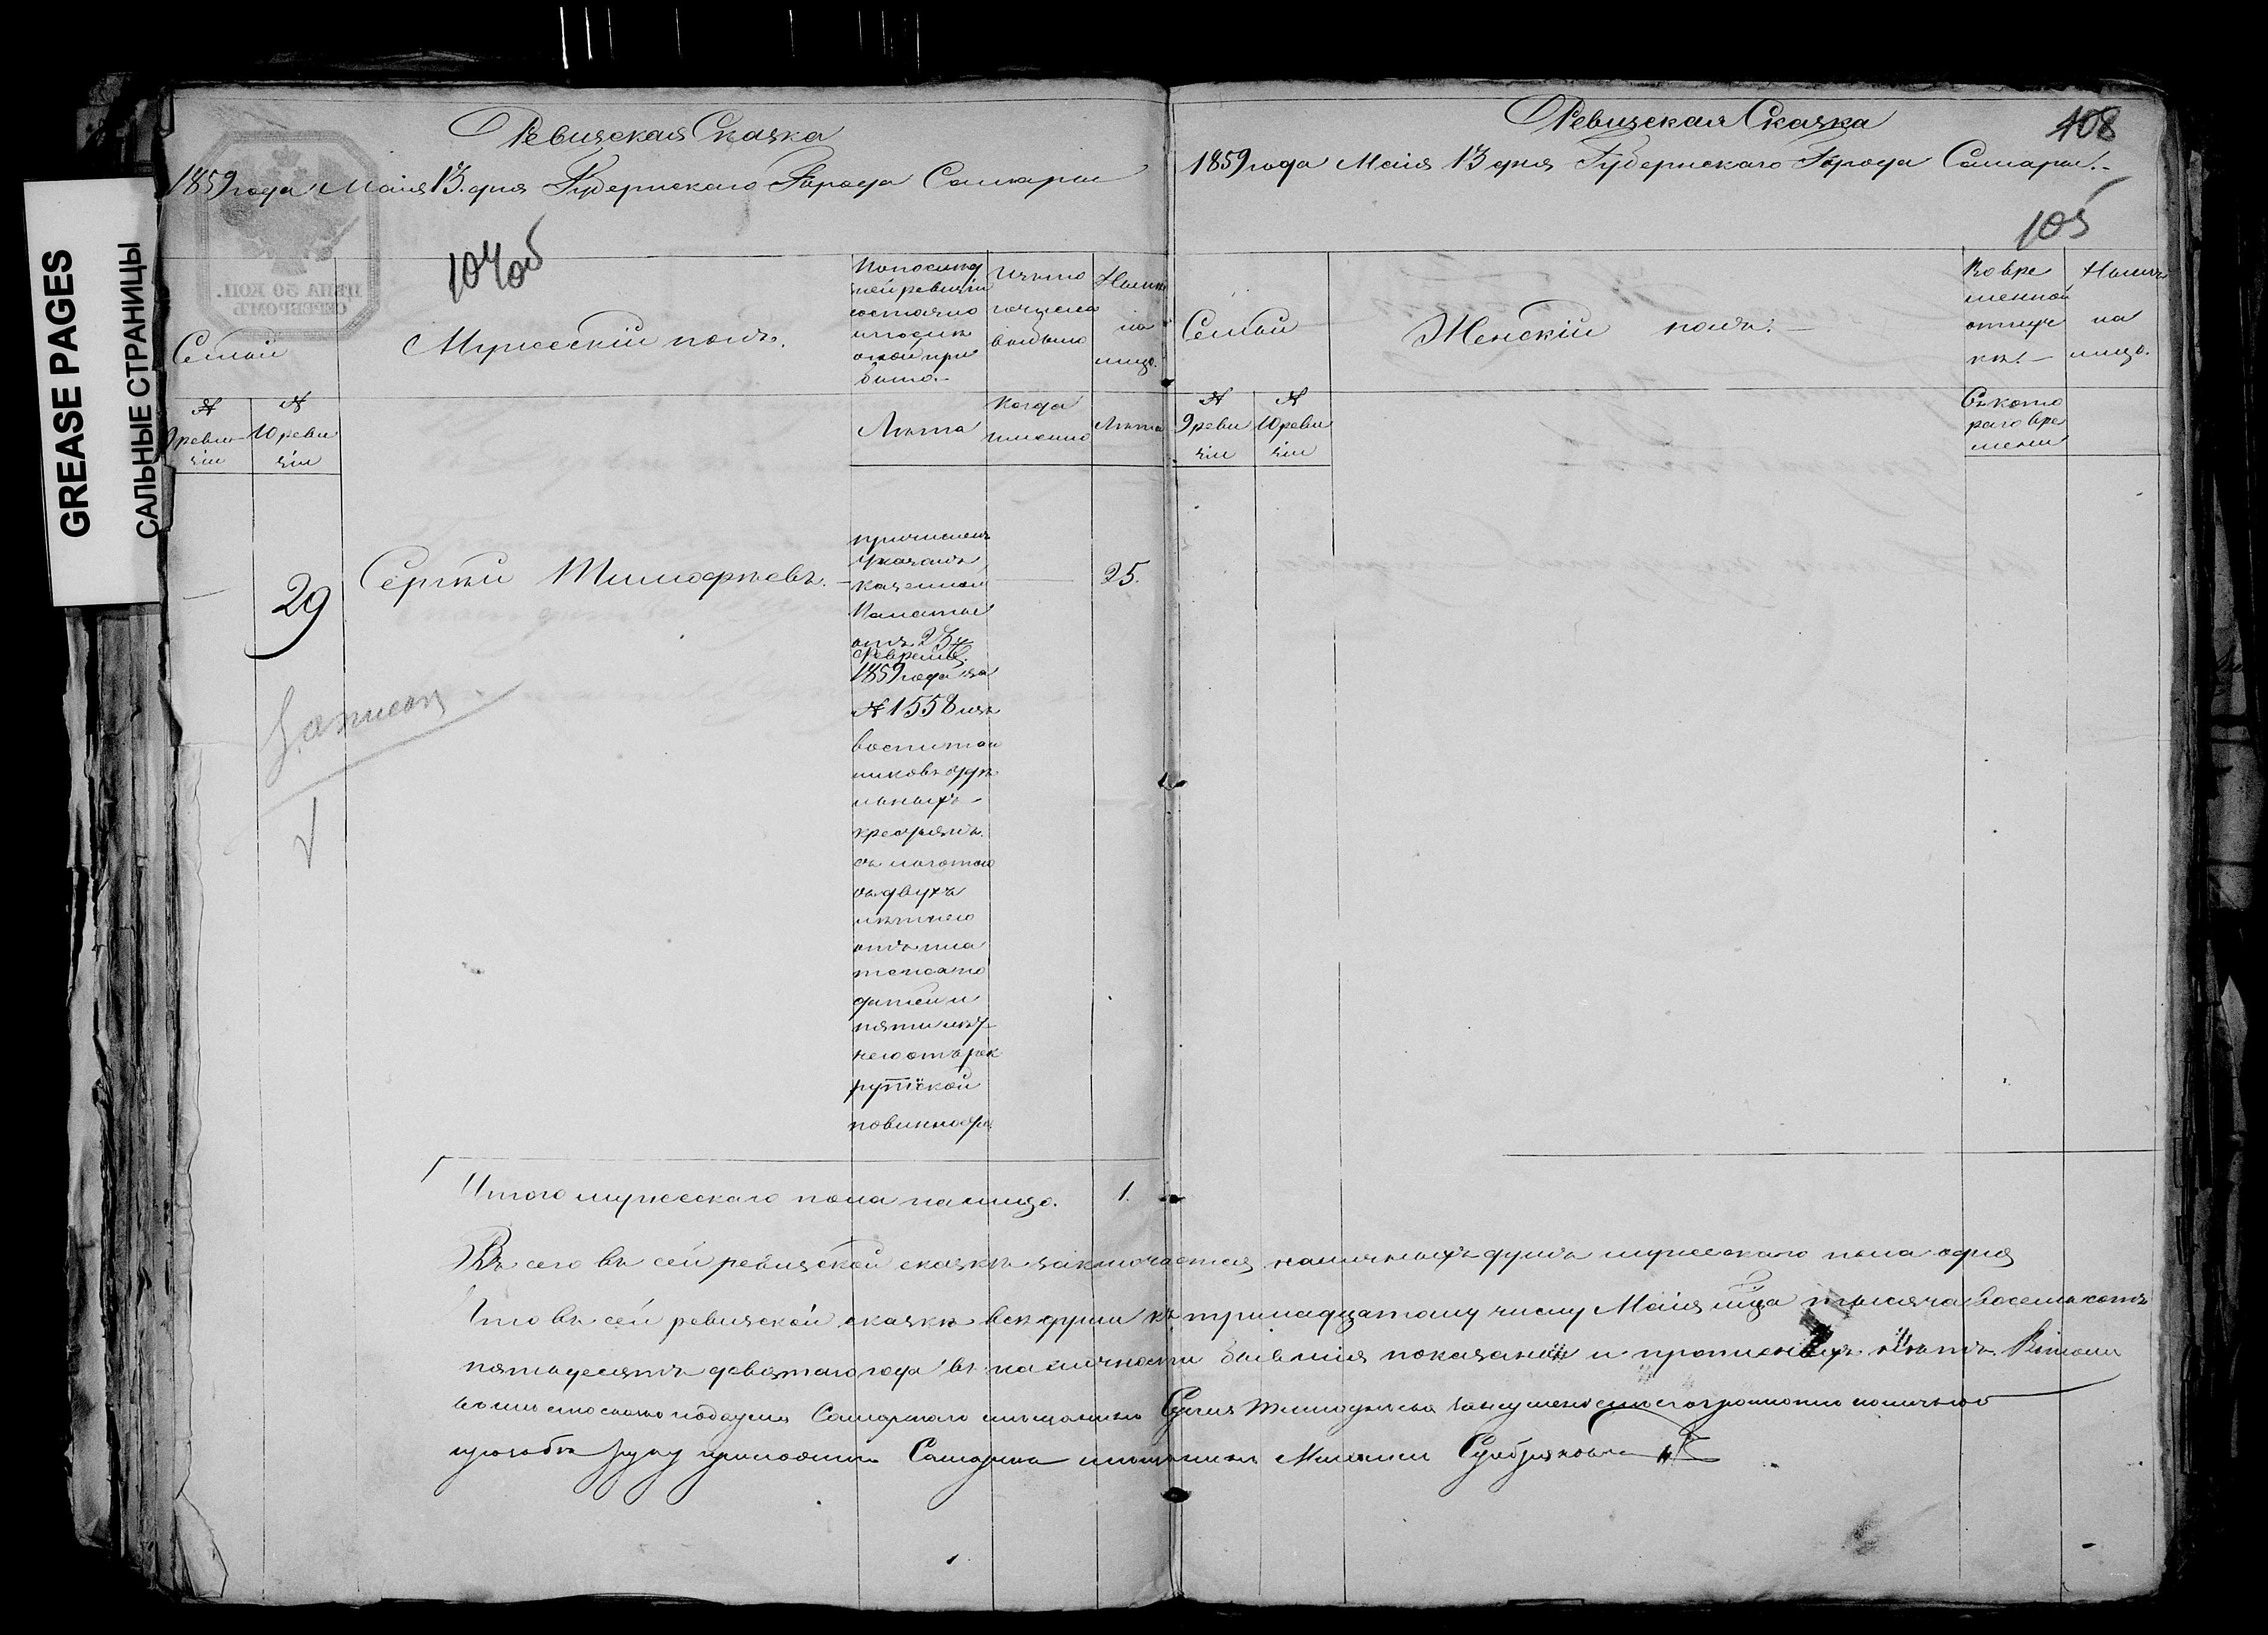 GREASE PAGES
САЛЬНЫЕ СТРАНИЦЫ
Ревизская Сказка
1859 года Маія 13. дня Губернскаго Города Самары
ЦѢНА 30 КОП.
СЕРЕБРОМЪ
104об
Семьи
Мужескій полъ.
По послед
ней ревизіи
состояло
и после
оной при
было.
Изъ того
числа
выбыло
Ныне
на
лицо.
№
9 реви
зіи
№
10 реви
зіи
Лѣта
Когда
именно
Лѣта
29
Сергѣй Тимофѣевъ.
25.
причисленъ
Указомъ
Казенной
Палаты
отъ 23
Февраля
1859 года за
№ 1558 изъ
воспитан
никовъ удѣ
льныхъ
крестьянъ
съ льготою
съ двухъ
лѣтнею
отъ пла
тежа по
датей и
пятилѣт
нею отъ рек
рутской
повинности
Записан
Итого мужескаго пола на лицо. 1.
Ревизская Сказка
108
1859 года Маія 13 дня Губернскаго Города Самары.
105
Семьи
Женскій полъ.
Во вре
менной
отлуч
кѣ.
На
лицо.
№
9 реви
зіи
№
10 реви
зіи
Съ кото
раго вре
мени
Всего въ сей ревизской сказкѣ заключается наличныхъ душъ мужескаго пола одна
Что въ сей ревизской сказкѣ всѣ души къ тринадцатому числу Маія мѣсяца тысяча восемьсотъ
пятьдесятъ девятаго года въ наличности бывшія показаны и прописныхъ нѣтъ. Въ томъ
Самарскаго мѣщанина Сергея Тимофеева
прозьбѣ руку приложилъ Самарской мѣщанинъ Михаилъ Серебряковъ